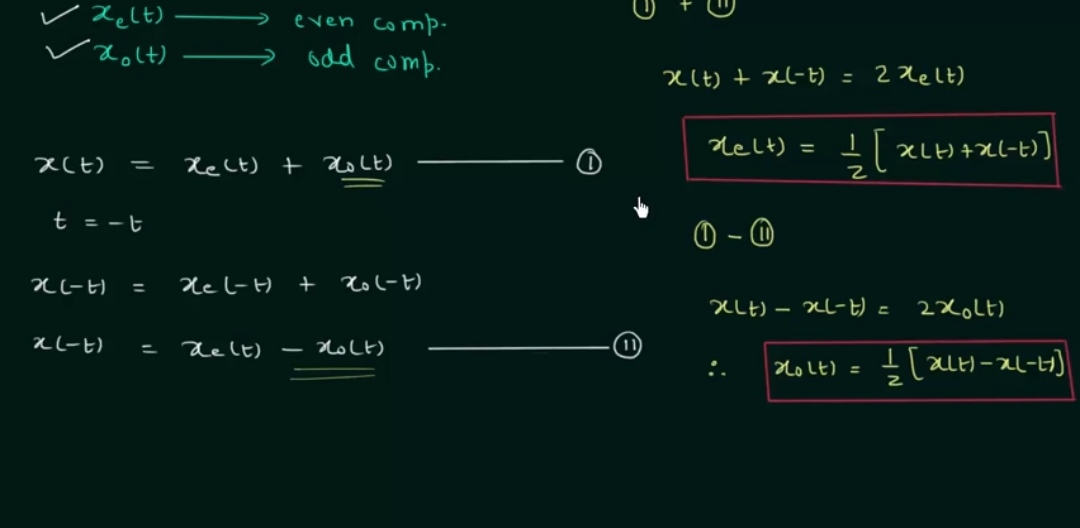 xₑ(t) ⟶ even comp.
xₒ(t) ⟶ odd comp.
x(t) = xₑ(t) + xₒ(t) — Ⓘ
t = -t
x(-t) = xₑ(-t) + xₒ(-t)
x(-t) = xₑ(t) - xₒ(t) — ⓘⓘ
Ⓘ + ⓘⓘ
x(t) + x(-t) = 2xₑ(t)
xₑ(t) = 1/2 [x(t)+x(-t)]
Ⓘ - ⓘⓘ
x(t) - x(-t) = 2xₒ(t)
∴ xₒ(t) = 1/2 [x(t)-x(-t)]